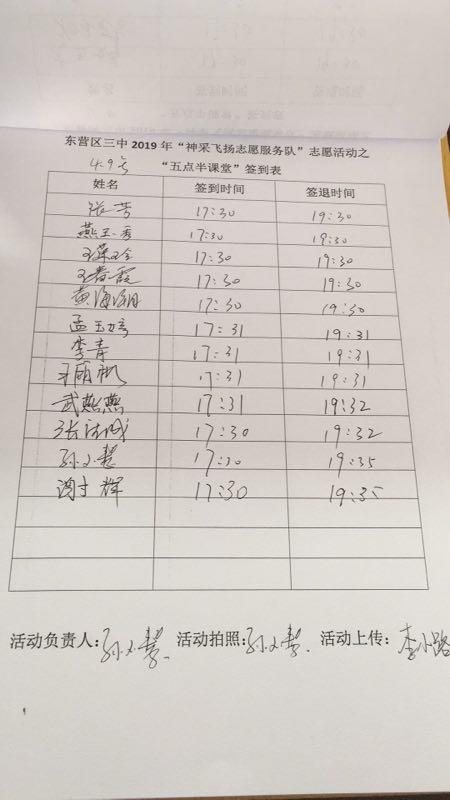 东营区三中2019年“神采飞扬志愿服务队”志愿活动之
4.9号 “五点半课堂”签到表
姓名 签到时间 签退时间
张芳 17:30 19:30
燕玉秀 17:30 19:30
17:30 19:30
王春霞 17:30 19:30
黄海娟 17:30 19:30
孟玉婷 17:31 19:31
李青 17:31 19:31
17:31 19:31
武燕燕 17:31 19:32
张洁成 17:30 19:32
孙文慧 17:30 19:35
辉 17:30 19:35
活动负责人:孙文慧 活动拍照:孙文慧 活动上传:李小路